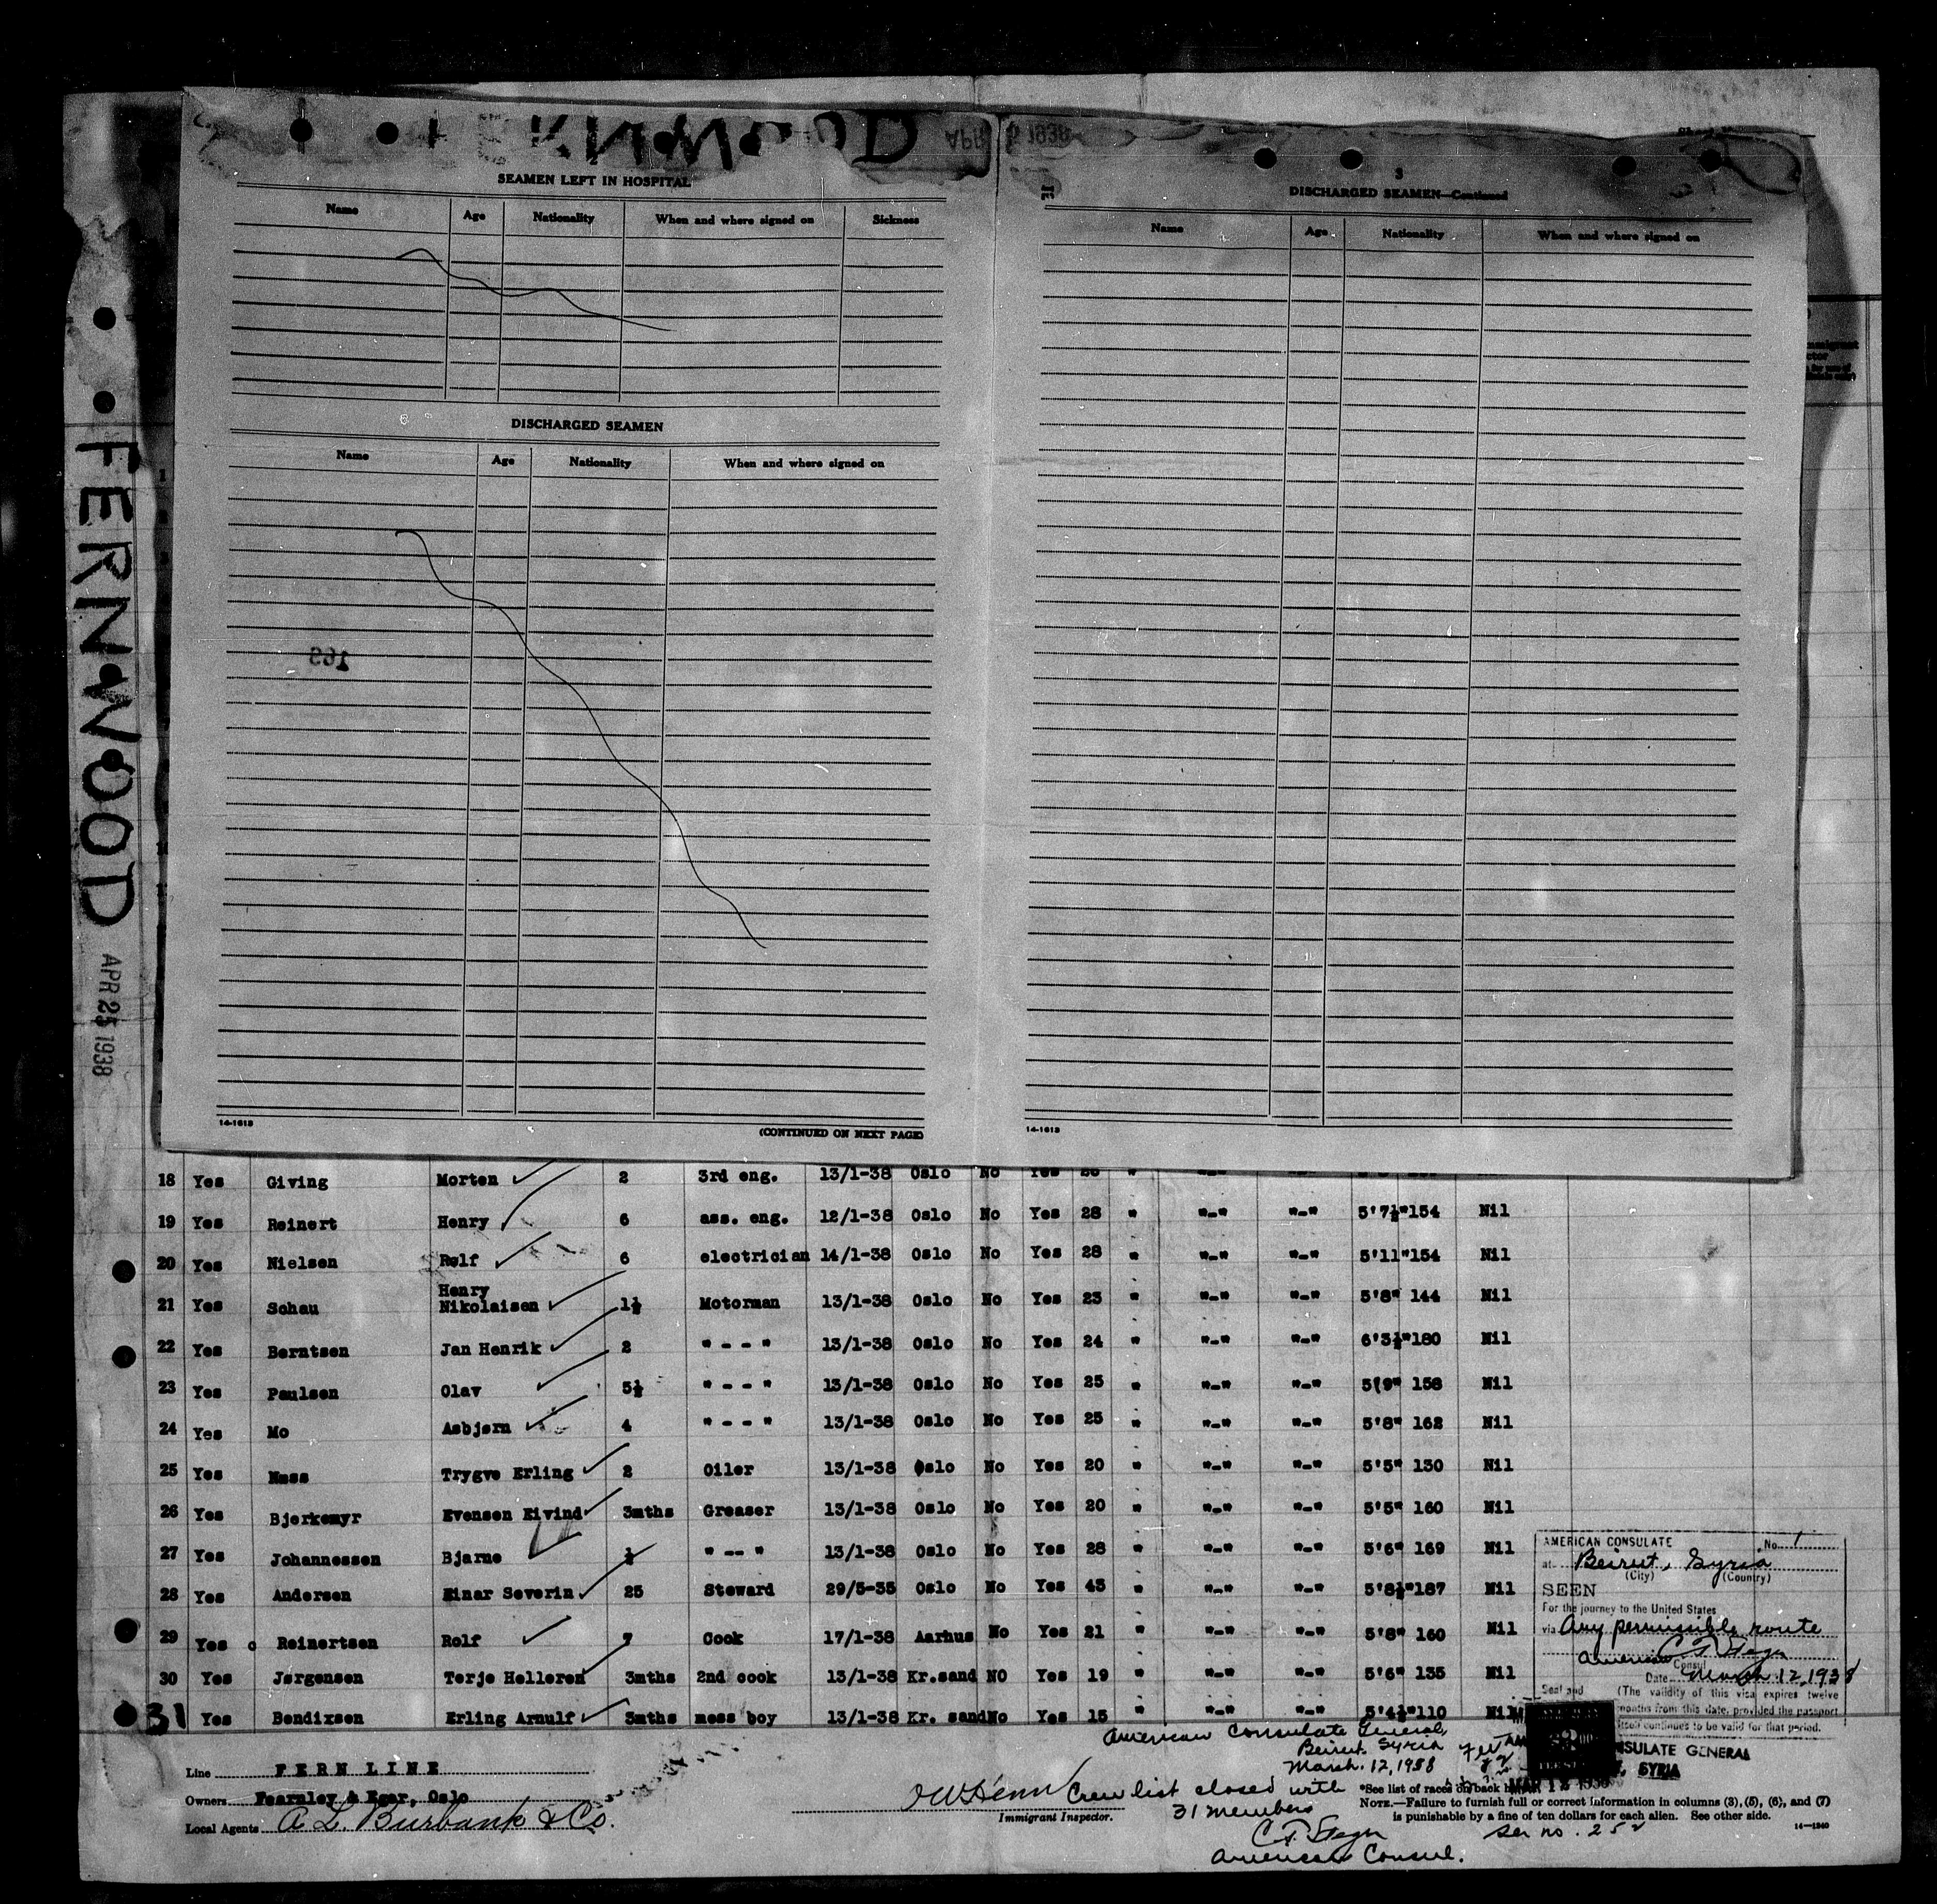 FERNWOOD
APR 25 1938
SEAMEN LEFT IN HOSPITAL
Name Age Nationality When and where signed on Sickness
DISCHARGED SEAMEN
Name Age Nationality When and where signed on
163
14-1613
(CONTINUED ON NEXT PAGE)
3
DISCHARGED SEAMEN—Continued
Name Age Nationality When and where signed on
14-1613
18 Yes Giving Morten 2 3rd eng. 13/1-38 Oslo No Yes
19 Yes Reinert Henry 6 ass. eng. 12/1-38 Oslo No Yes 28 " "-" "-" 5'7½" 154 Nil
20 Yes Nielsen Rolf 6 electrician 14/1-38 Oslo No Yes 28 " "-" "-" 5'11" 154 Nil
21 Yes Schau Henry Nikolaisen 1½ Motorman 13/1-38 Oslo No Yes 23 " "-" "-" 5'8" 144 Nil
22 Yes Berntsen Jan Henrik 2 " - - - " 13/1-38 Oslo No Yes 24 " "-" "-" 6'3½" 180 Nil
23 Yes Paulsen Olav 5½ " - - - " 13/1-38 Oslo No Yes 25 " "-" "-" 5(9" 158 Nil
24 Yes Mo Asbjørn 4 " - - - " 13/1-38 Oslo No Yes 25 " "-" "-" 5'8" 162 Nil
25 Yes Trygve Erling 2 Oiler 13/1-38 Oslo No Yes 20 " "-" "-" 5'5" 130 Nil
26 Yes Bjerkemyr Evensen Eivind 3mths Greaser 13/1-38 Oslo No Yes 20 " "-" "-" 5'5" 160 Nil
27 Yes Johannessen Bjarne ½ " -- " 13/1-38 Oslo No Yes 28 " "-" "-" 5'6" 169 Nil
28 Yes Andersen Einar Severin 25 Steward 29/5-35 Oslo No Yes 43 " "-" "-" 5'8½" 187 Nil
29 Yes Reinertsen Rolf 7 Cook 17/1-38 Aarhus No Yes 21 " "-" "-" 5'8" 160 Nil
30 Yes Jørgensen Terje Helleren 3mths 2nd cook 13/1-38 Kr.sand NO Yes 19 " "-" "-" 5'6" 135 Nil
31 Yes Bendixsen Erling Arnulf 3mths mess boy 13/1-38 Kr. sand No Yes 15 " "-" "-" 5'4½" 110 Nil
AMERICAN CONSULATE No. 1
at Beirut, Syria
(City) (Country)
SEEN
For the journey to the United States
via Any permissible route
American Consul
Date March 12, 1938
Seal and (The validity of this visa expires twelve
months from this date, provided the passport
itself continues to be valid for that period.
American Consulate General
Beirut Syria
March. 12, 1938
Crew list closed with
31 members
American Consul.
CONSULATE GENERAL
SYRIA
MAR 12 1938
Line FERN LINE
Owners Fearnley & Eger, Oslo
Local Agents A. L. Burbank & Co.
Immigrant Inspector.
*See list of races on back
NOTE.—Failure to furnish full or correct information in columns (3), (5), (6), and (7)
is punishable by a fine of ten dollars for each alien. See other side.
Ser no. 252
14—1240